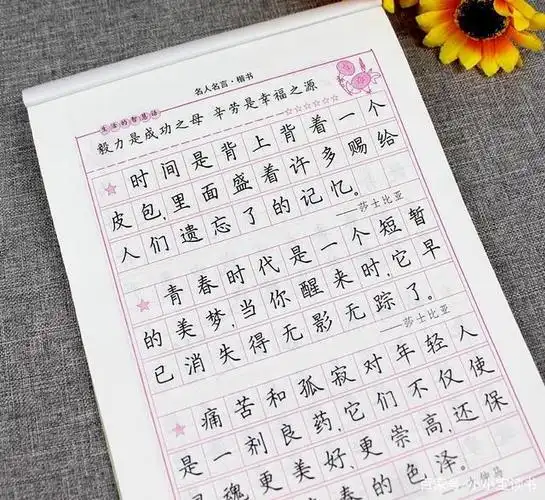 名人名言·楷书
生活的智慧语
毅力是成功之母 辛劳是幸福之源
时间是背上背着一个
皮包,里面盛着许多赐给
人们遗忘了的记忆。
——莎士比亚
青春时代是一个短暂
的美梦,当你醒来时,它早
已消失得无影无踪了。
——莎士比亚
痛苦和孤寂对年轻人
是一剂良药,它们不仅使
灵魂更美好,更崇高,还保
春的色泽。